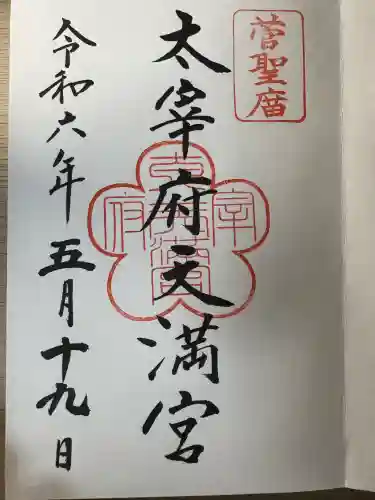 菅聖廟
太宰府天満宮
令和六年五月十九日